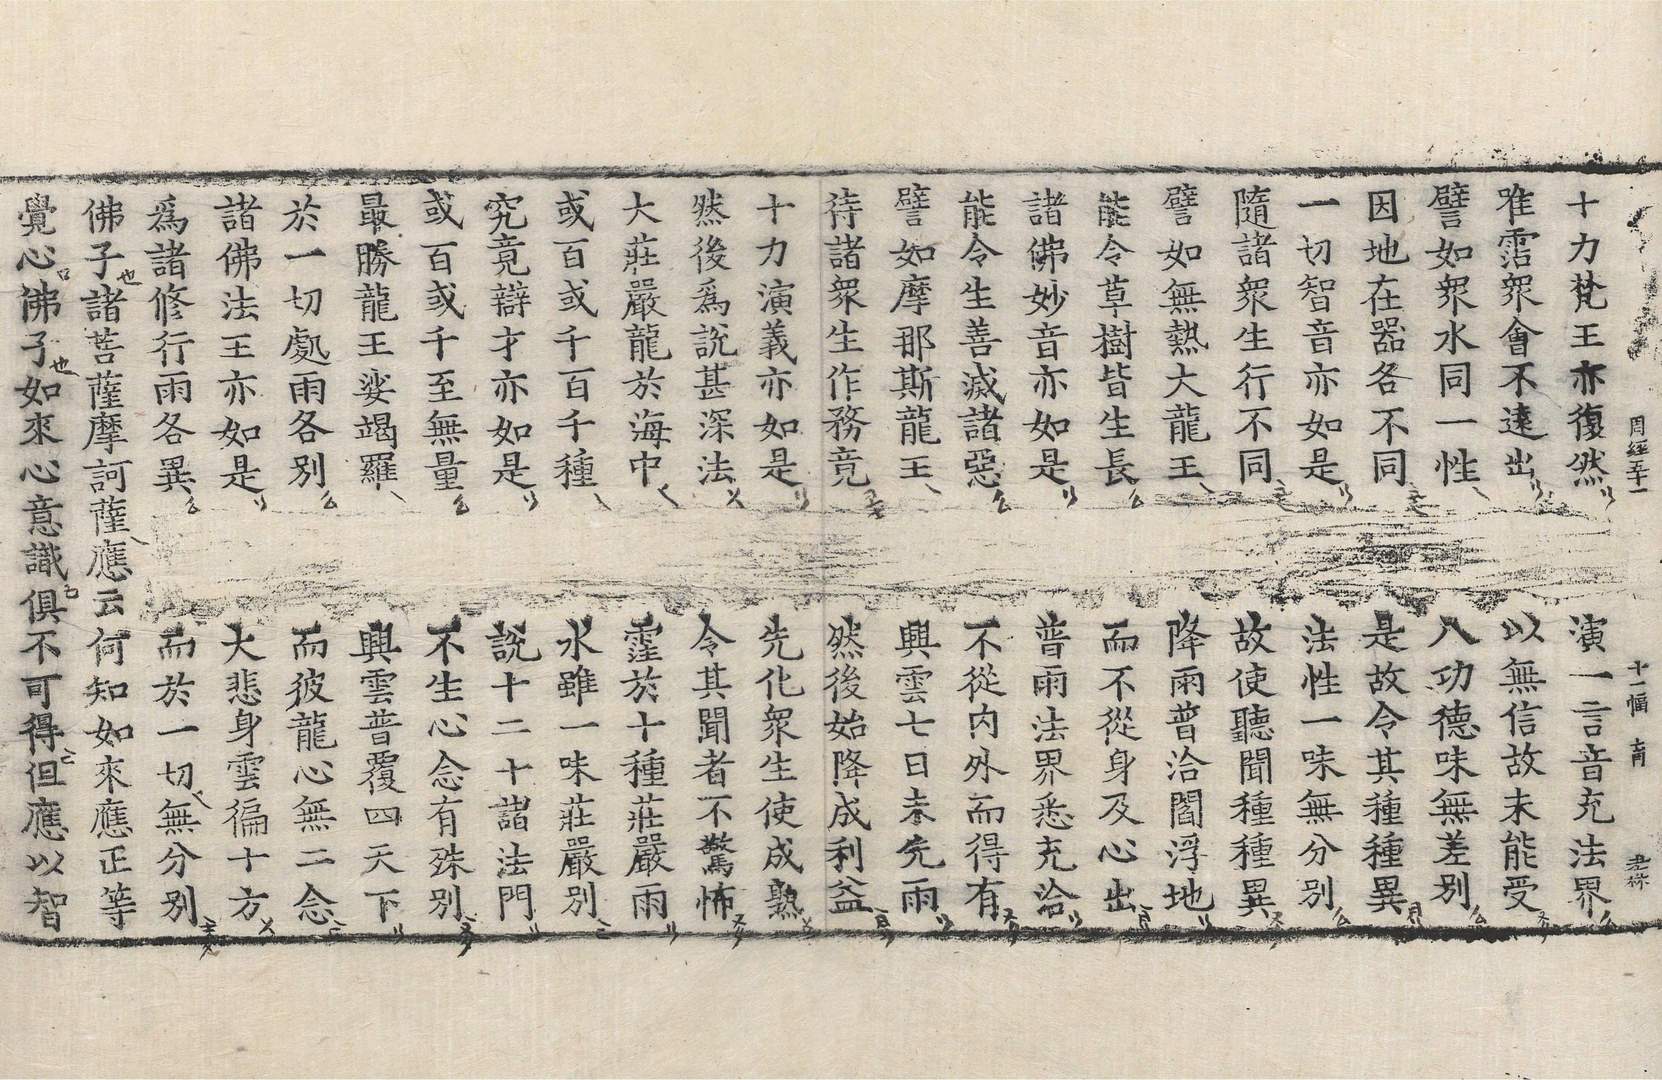 周經五十一 十一幅
十力梵王亦復然 演一言音充法界
唯霑眾會不遠出 以無信故未能受
譬如眾水同一性 八功德味無差別
因地在器各不同 是故令其種種異
一切智音亦如是 法性一味無分別
隨諸眾生行不同 故使聽聞種種異
譬如無熱大龍王 降雨普洽閻浮地
能令草樹皆生長 而不從身及心出
諸佛妙音亦如是 普雨法界悉充洽
能令生善滅諸惡 不從內外而得有
譬如摩那斯龍王 興雲七日未先雨
待諸眾生作務竟 然後始降成利益
十力演義亦如是 先化眾生使成熟
然後爲說甚深法 令其聞者不驚怖
大莊嚴龍於海中 霔於十種莊嚴雨
或百或千百千種 水雖一味莊嚴別
究竟辯才亦如是 說十二十諸法門
或百或千至無量 不生心念有殊別
最勝龍王娑竭羅 興雲普覆四天下
於一切處雨各別 而彼龍心無二念
諸佛法王亦如是 大悲身雲徧十方
爲諸修行雨各異 而於一切無分別
佛子也諸菩薩摩訶薩應云何知如來應正等
覺心佛子也如來心意識俱不可得但應以智